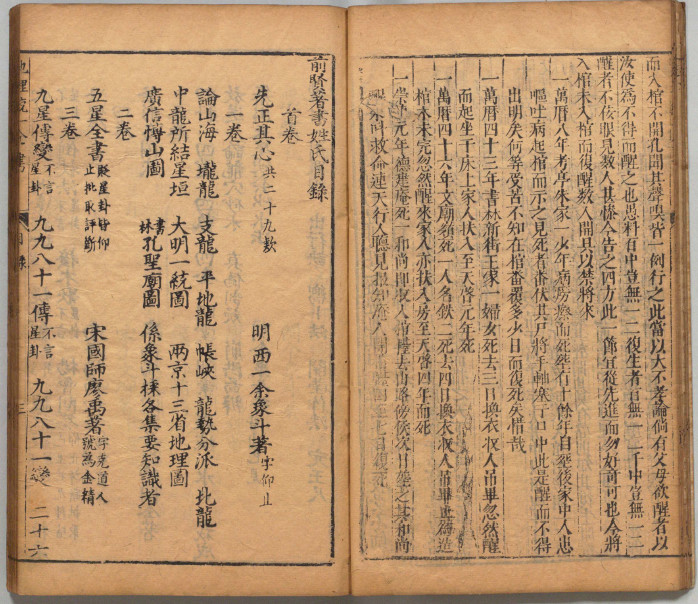 而入棺不開孔聞其聲嗅皆一例行之此當以大不孝論倘有父母欲醒者以
汝使為不得而醒之也思料百中豈無一二復生者 無一二千中豈無一二
醒者不依眼見數人甚慘今告之四方此一節宜從先進而勿好奇可也今將
入棺未入棺而復醒數人開具以禁將來
一萬曆八年考亭朱家一少年病房癆而死塟有十餘年日塟後家中人患
嘔吐病起棺而示之見死者番伏其尸將手 塞于口中此是醒而不得
出明矣何等受苦不知在棺番覆多少日而復死矣惜哉
一萬曆四十三年書林新街王家一婦女死去三日換衣収人吊畢忽然醒
而起坐于床上家人扶入至天啓元年死
一萬曆四十六年文廟頭死一人名鉄二死去四日換衣収人吊畢 磚造
棺木未完忽然醒來家人亦扶入房至天啓四年而死
元年德 庵死一和尚 収人吊 去山 後 次日塟之其和尚
救命連天行人聽見報知庵人開
前賢著書姓氏目錄
首卷
先正其心共二十九款 明西一余象斗著字仰止
一卷
論山海 壠龍 支龍 平地龍 帳峽 龍勢分派 北龍
中龍所結星垣 大明一統圖 兩京十三省地理圖
廣信博山圖 書林孔聖廟圖 係象斗樣各集要知識者
二卷
五星全書 宋國師廖禹著字克道人號為金精
三卷
九星傳變不言星卦 九九八十一傳不言星卦 九九八十一變 二十六
目錄
三